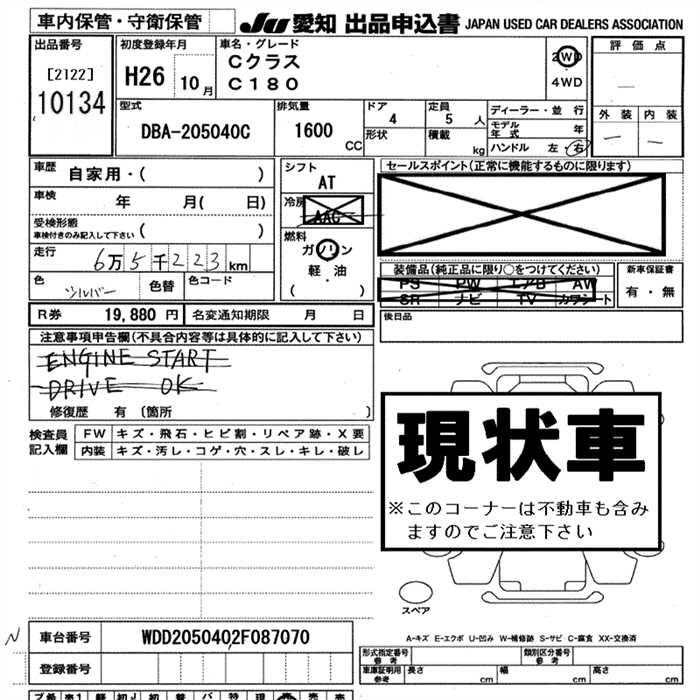 車内保管・守衛保管
JU 愛知 出品申込書 JAPAN USED CAR DEALERS ASSOCIATION
出品番号
[2122]
10134
初度登録年月
H26 10月
車名・グレード
Cクラス
C180
2WD
4WD
評価点
—
外装 内装
— —
型式
DBA-205040C
排気量
1600 CC
ドア
4
形状
定員
5 人
積載
kg
ディーラー・並行
モデル年式 年
ハンドル 左・右
車歴 自家用・( )
車検 年 月( 日)
受検形態
車検付きのみ記入して下さい ( )
走行 6万5千223km
色 シルバー 色替 色コード
シフト
AT
冷房
AAC
燃料
ガソリン
軽・油
( )
セールスポイント(正常に機能するものに限ります)
装備品(純正品に限り○をつけてください)
PS PW エアB AW
SR ナビ TV カワシート
新車保証書
有・無
R券 19,880 円 名変通知期限 月 日
後日品
注意事項申告欄(不具合内容等は具体的に記入して下さい)
ENGINE START
DRIVE OK
修復歴 有 [箇所 ]
検査員記入欄
FW キズ・飛石・ヒビ割・リペア跡・X要
内装 キズ・汚レ・コゲ・穴・スレ・キレ・破レ
現状車
※このコーナーは不動車も含み
ますのでご注意下さい
スペア
A-キズ E-エクボ U-凹み W-補修跡 S-サビ C-腐食 XX-交換済
N 車台番号 WDD2050402F087070
登録番号
形式指定番号 参考 類別区分番号 参考
車庫証明用 参考 長さ cm 幅 cm 高さ cm